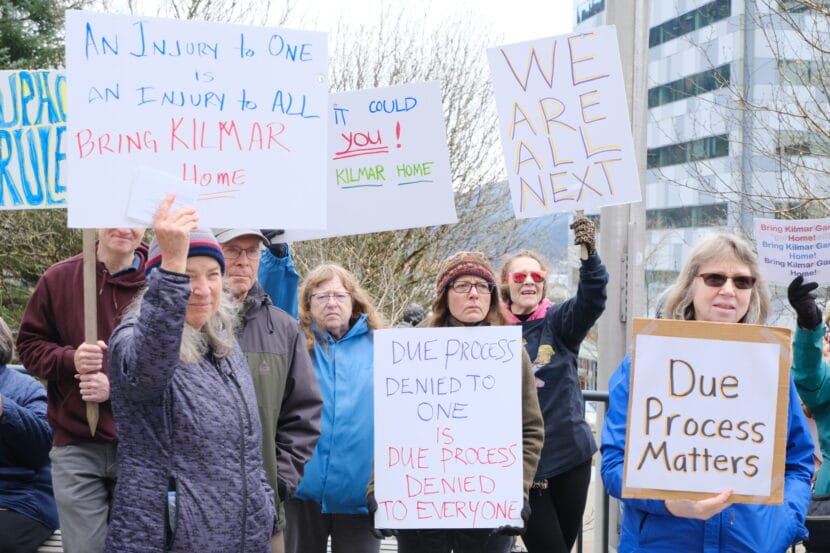 UPHO
RULE
AN INJURY to ONE
is
AN INJURY to ALL
BRING KILMAR
Home
IT COULD
YOU!
KILMAR HOME
WE
ARE
ALL
NEXT
Bring Kilmar Gar
Home!
Bring Kilmar Gar
Home!
Bring Kilmar Ga
Home!
DUE PROCESS
DENIED TO
ONE
IS
DUE PROCESS
DENIED
TO EVERYONE
Due
Process
Matters